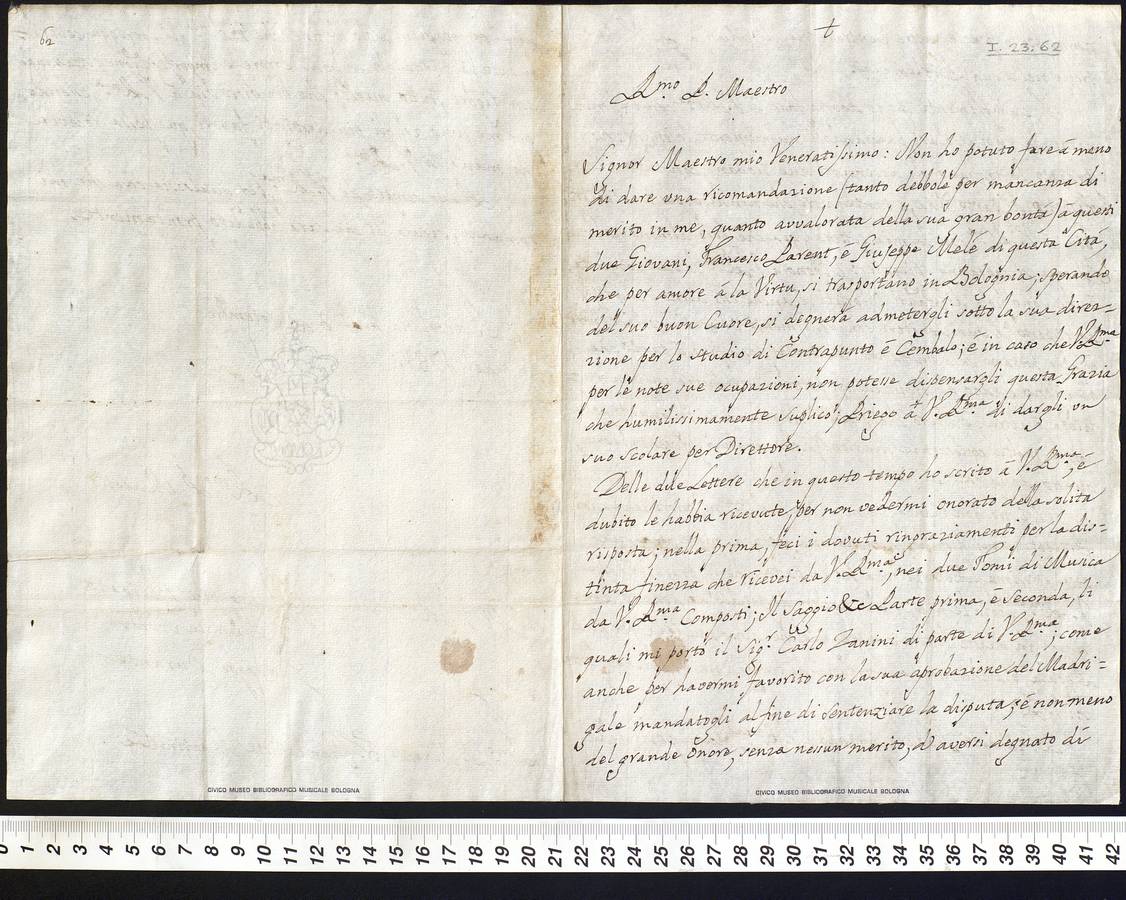 62
+
I. 23. 62
R.mo P. Maestro
Signor Maestro mio Veneratissimo: Non ho potuto fare á meno
di dare una ricomandazione (tanto debbole per mancanza di
merito in me, quanto avvalorata della sua gran bontá) á questi
due Giovani, Francesco Parent, é Giuseppe Melé di questa Cità,
che per amore á la Virtu, si trasportano in Bolognia; sperando
del suo buon Cuore, si degnerá admetergli sotto la sua direz=
zione per lo studio di Contrapunto é Cembalo; é in caso che V. R.ma
per le note sue ocupazioni, non potesse dispensargli questa Grazia
che humilissimamente suplico; Priego á V. R.ma di dargli un
suo scolare per Direttore.
Delle due Lettere che in questo tempo ho scrito á V. R.ma, é
dubito le habbia ricevute, per non vedermi onorato della solita
risposta; nella prima, feci i dovuti ringraziamenti per la dis=
tinta finezza che ricevei da V. R.ma, nei due Tomi di Musica
da V. R.ma Composti; Il Saggio &c Parte prima, é Seconda, li
quali mi portó il Sig.r Carlo Zanini di parte di V. R.ma; come
anche per havermi favorito con la sua aprobazione del Madri=
gale mandatogli al fine di sentenziare la disputa; é non meno
del grande onore, senza nessun merito, d'aversi degnato di
CIVICO MUSEO BIBLIOGRAFICO MUSICALE BOLOGNA
CIVICO MUSEO BIBLIOGRAFICO MUSICALE BOLOGNA
0 1 2 3 4 5 6 7 8 9 10 11 12 13 14 15 16 17 18 19 20 21 22 23 24 25 26 27 28 29 30 31 32 33 34 35 36 37 38 39 40 41 42